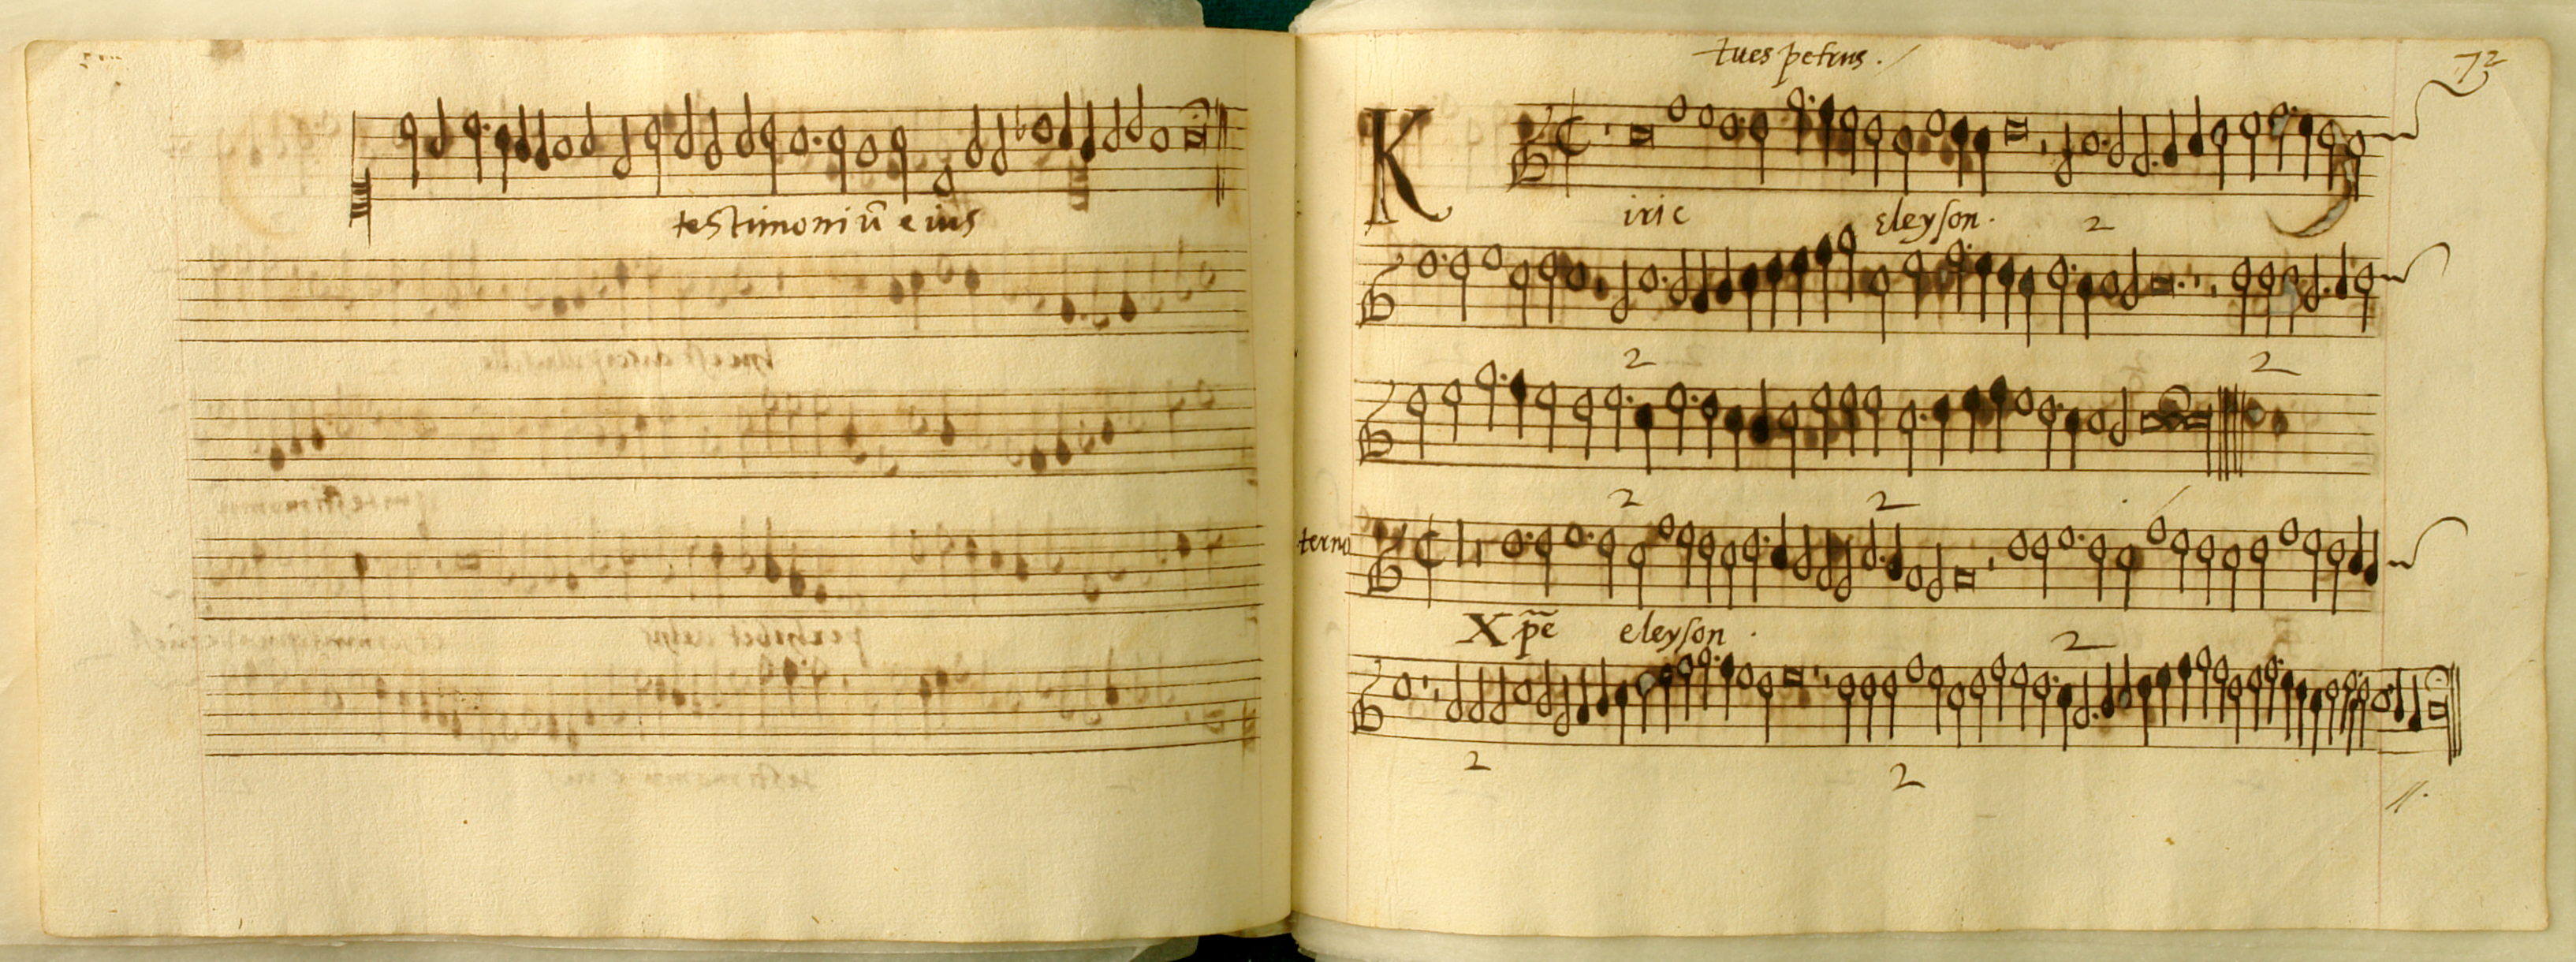 testimoniũ eius
tues petrus.
72
K
irie eleyson. 2
2 2
2 2
terno
Xp̃e eleyson. 2
2 2